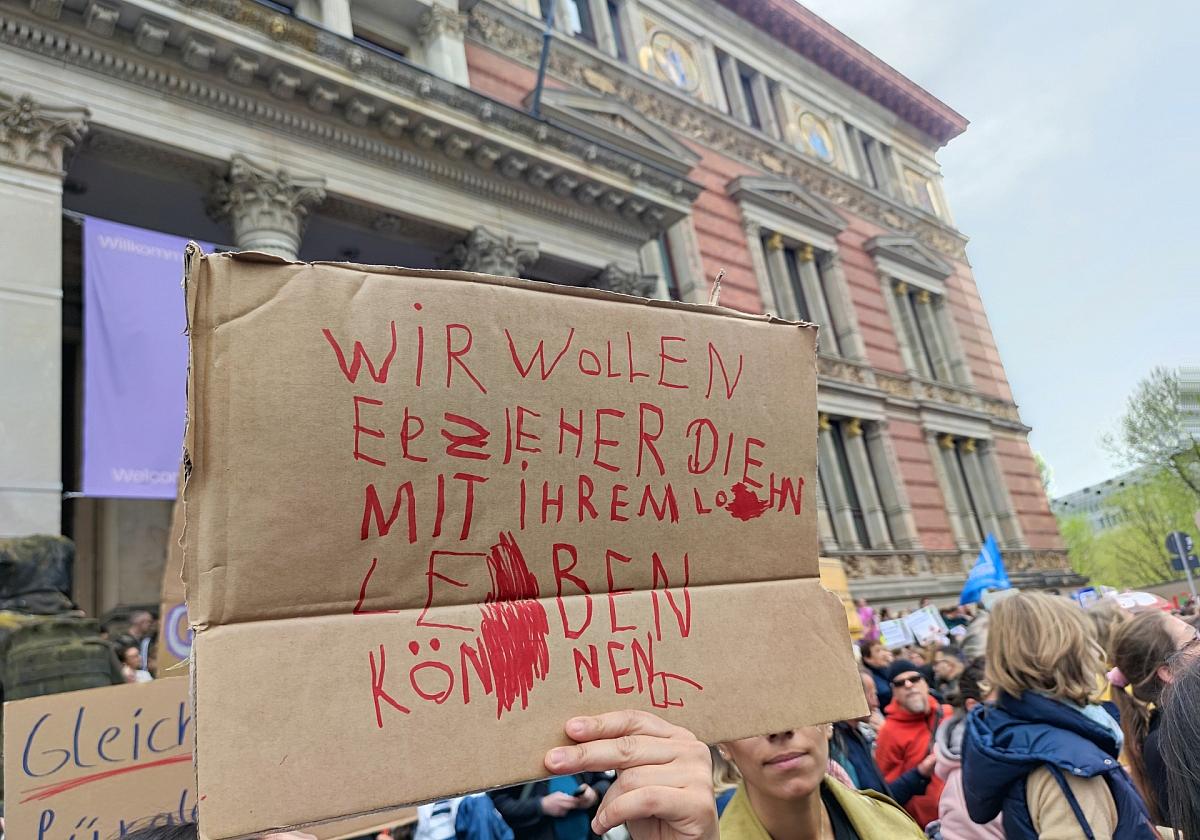 Willkomm
Welcom
WiR WOLLEN
ERZIEHER DIE
MIT iHREM LOHN
LEBEN
KÖNNEN
Gleich
für